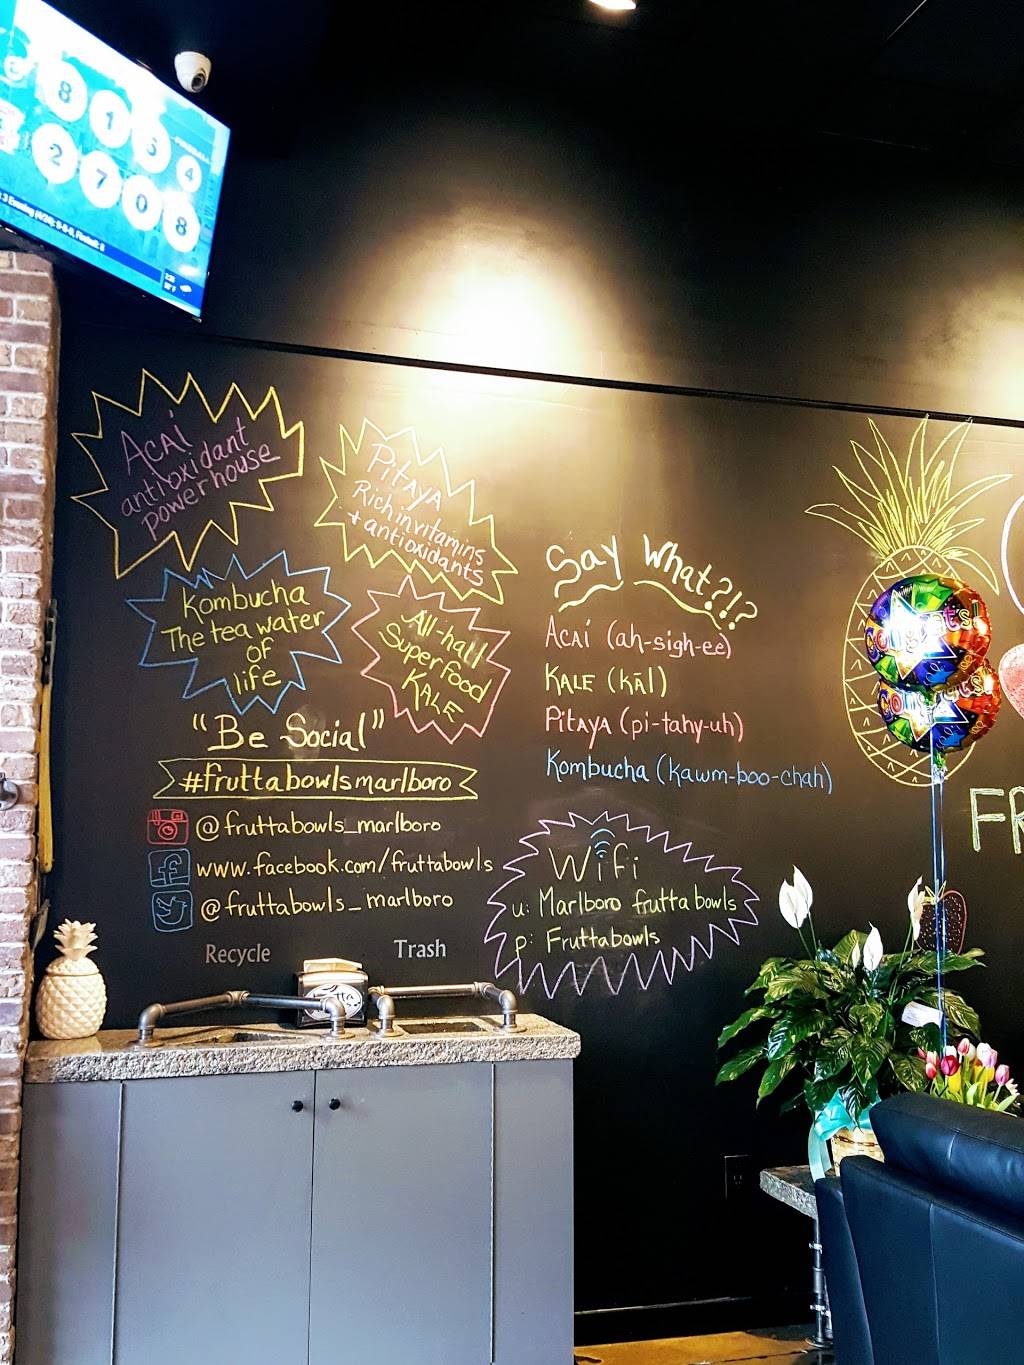 8 1 5 4
2 7 0 8
3 Evening (4/24): 9-8-0, Fireball: 6
Acaí
antioxidant
powerhouse
Pitaya
Rich in vitamins
+ antioxidants
Kombucha
The tea water
of
life
All-hail
Superfood
Kale
Say What?!?
Acaí (ah-sigh-ee)
Kale (kāl)
Pitaya (pi-tahy-uh)
Kombucha (kawm-boo-chah)
"Be Social"
#fruttabowlsmarlboro
@fruttabowls_marlboro
www.facebook.com/fruttabowls
@fruttabowls_marlboro
Wifi
u: Marlboro frutta bowls
p: Fruttabowls
Recycle
Trash
Congrats!
Congrats!
FR